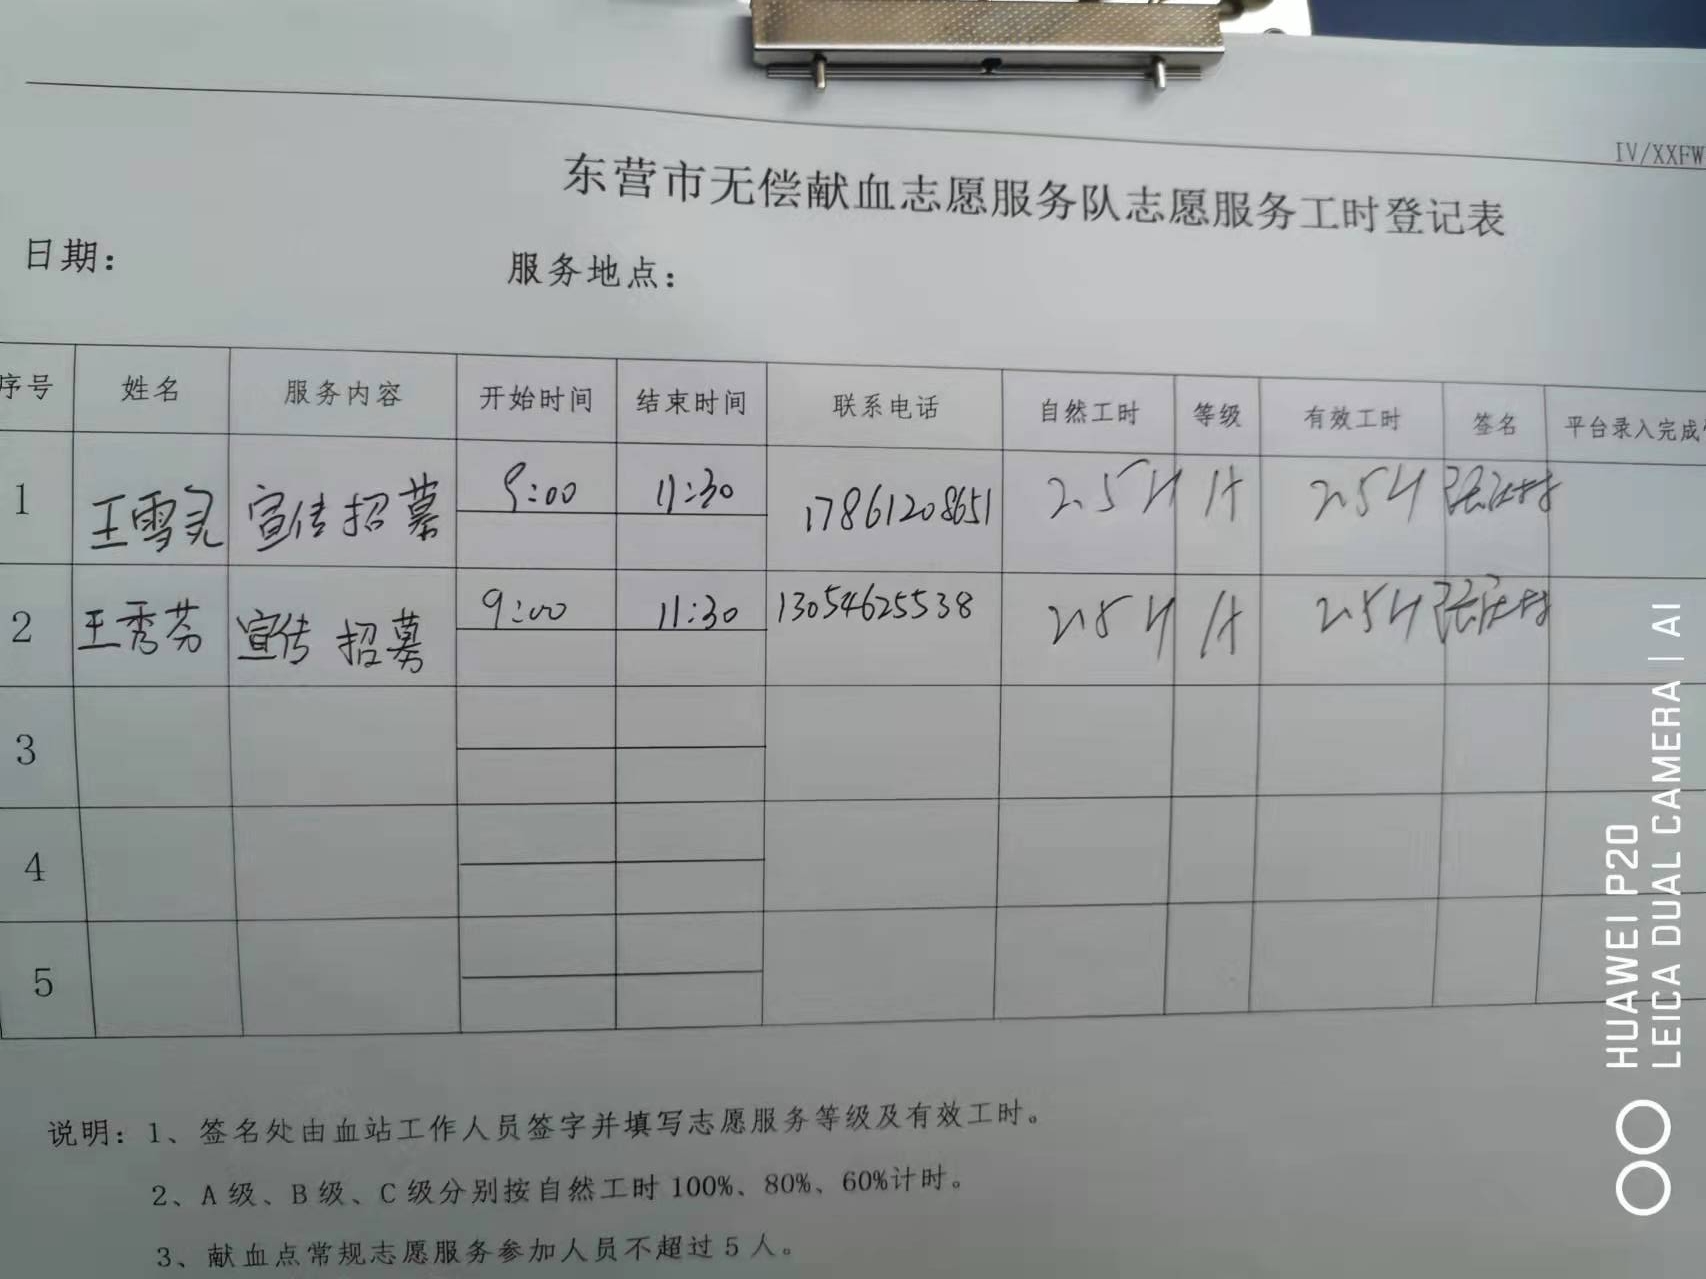 IV/XXFW
东营市无偿献血志愿服务队志愿服务工时登记表
日期： 服务地点：
序号 姓名 服务内容 开始时间 结束时间 联系电话 自然工时 等级 有效工时 签名 平台录入完成
1 王雪灵 宣传招募 9:00 11:30 17861208651 2.5H A 2.5H
2 王秀芬 宣传招募 9:00 11:30 13054625538 2.5H A 2.5H
3
4
5
说明：1、签名处由血站工作人员签字并填写志愿服务等级及有效工时。
2、A级、B级、C级分别按自然工时100%、80%、60%计时。
3、献血点常规志愿服务参加人员不超过5人。
HUAWEI P20
LEICA DUAL CAMERA | AI